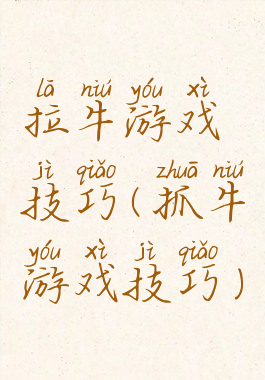 lā niú yóu xì
拉牛游戏
jì qiǎo zhuā niú
技巧(抓牛
yóu xì jì qiǎo
游戏技巧)